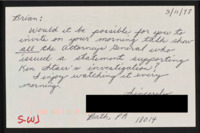 3/11/98
Brian:
Would it be possible for you to
invite on your morning talk show
all the Attorneys General who
issued a statement supporting
Ken Starr's investigation?
I enjoy watching it every
morning.
Sincerely
S-WJ
Bath, PA
18014